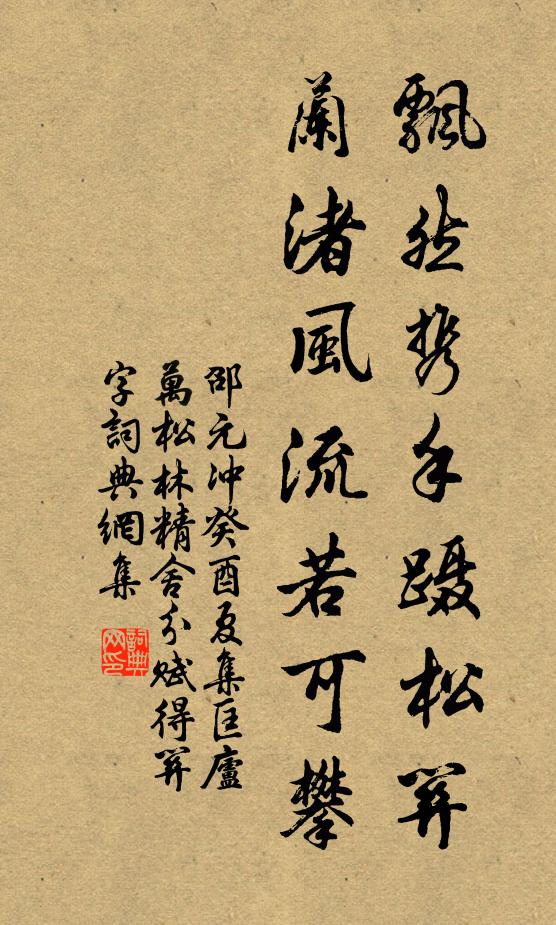 飄然携手蹑松关
蘭渚風流若可攀
邵元沖癸酉夏集匡廬
萬松林精舍分賦得关
字詞典網集
詞典
网印